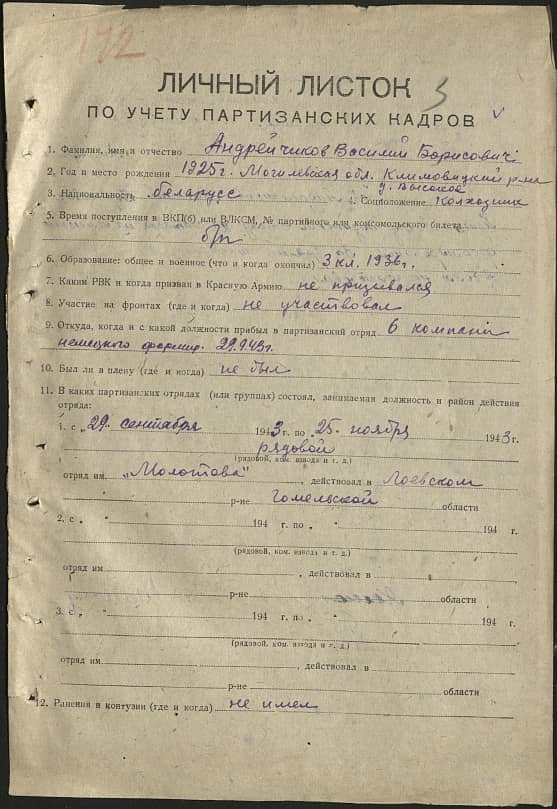 172
ЛИЧНЫЙ ЛИСТОК 3
ПО УЧЕТУ ПАРТИЗАНСКИХ КАДРОВ
1. Фамилия, имя и отчество Андрейчиков Василий Борисович
2. Год и место рождения 1925 г. Могилевская обл. Климовицкий р-на
д. Высокое
3. Национальность беларусс 3. Соцположение Колхозник
5. Время поступления в ВКП(б) или ВЛКСМ, № партийного или комсомольского билета
б/п
6. Образование: общее и военное (что и когда окончил) 3 кл. 1936 г.
7. Каким РВК и когда призван в Красную Армию не призывался
8. Участие на фронтах (где и когда) не участвовал
9. Откуда, когда и с какой должности прибыл в партизанский отряд 6 компани
немецкого формир. 29.9.43 г.
10. Был ли в плену (где и когда) не был
11. В каких партизанских отрядах (или группах) состоял, занимаемая должность и район действия
отряда:
1. с „29 сентября 1943 г. по „25„ ноября 1943 г.
рядовой
(рядовой, ком. взвода и т. д.)
отряд им. „Молотова" , действовал в Лоевском
р-не Гомельской области
2. с „ " 194 г. по „ " 194 г.
(рядовой, ком. взвода и т. д.)
отряд им. , действовал в
р-не области
3. с „ " 194 г. по „ " 194 г.
(рядовой, ком. взвода и т. д.)
отряд им. , действовал в
р-не области
12. Ранения и контузии (где и когда) не имел